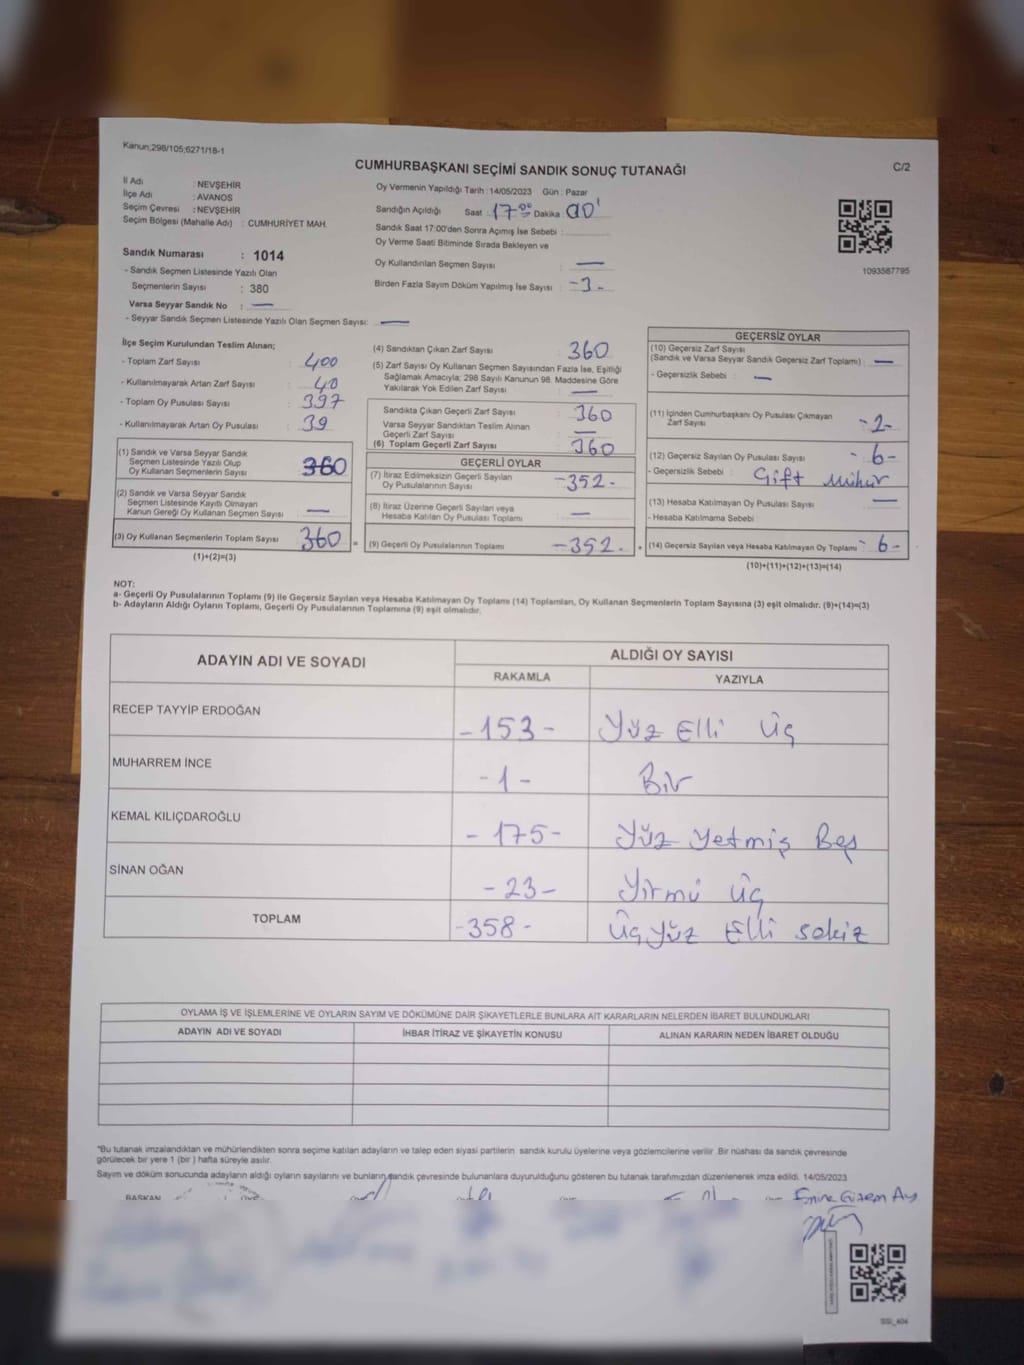 Kanun;298/105;6271/18-1
CUMHURBAŞKANI SEÇİMİ SANDIK SONUÇ TUTANAĞI
C/2
İl Adı : NEVŞEHİR
İlçe Adı : AVANOS
Seçim Çevresi : NEVŞEHİR
Seçim Bölgesi (Mahalle Adı) : CUMHURİYET MAH.
Oy Vermenin Yapıldığı Tarih :14/05/2023 Gün : Pazar
Sandığın Açıldığı Saat : 17:00 Dakika 00'
Sandık Saat 17:00'den Sonra Açımış İse Sebebi :
Oy Verme Saati Bitiminde Sırada Bekleyen ve
Oy Kullandırılan Seçmen Sayısı : —
Birden Fazla Sayım Döküm Yapılmış İse Sayısı : -3-
1093587795
Sandık Numarası : 1014
- Sandık Seçmen Listesinde Yazılı Olan
Seçmenlerin Sayısı : 380
Varsa Seyyar Sandık No : —
- Seyyar Sandık Seçmen Listesinde Yazılı Olan Seçmen Sayısı: —
İlçe Seçim Kurulundan Teslim Alınan;
- Toplam Zarf Sayısı : 400
- Kullanılmayarak Artan Zarf Sayısı : 40
- Toplam Oy Pusulası Sayısı : 397
- Kullanılmayarak Artan Oy Pusulası : 39
(1) Sandık ve Varsa Seyyar Sandık
Seçmen Listesinde Yazılı Olup
Oy Kullanan Seçmenlerin Sayısı 360
(2) Sandık ve Varsa Seyyar Sandık
Seçmen Listesinde Kayıtlı Olmayan
Kanun Gereği Oy Kullanan Seçmen Sayısı —
(3) Oy Kullanan Seçmenlerin Toplam Sayısı 360
(1)+(2)=(3)
(4) Sandıktan Çıkan Zarf Sayısı : 360
(5) Zarf Sayısı Oy Kullanan Seçmen Sayısından Fazla İse, Eşitliği
Sağlamak Amacıyla; 298 Sayılı Kanunun 98. Maddesine Göre
Yakılarak Yok Edilen Zarf Sayısı : —
Sandıkta Çıkan Geçerli Zarf Sayısı : 360
Varsa Seyyar Sandıktan Teslim Alınan
Geçerli Zarf Sayısı : —
(6) Toplam Geçerli Zarf Sayısı : 360
GEÇERLİ OYLAR
(7) İtiraz Edilmeksizin Geçerli Sayılan
Oy Pusulalarının Sayısı : -352-
(8) İtiraz Üzerine Geçerli Sayılan veya
Hesaba Katılan Oy Pusulası Toplamı : —
(9) Geçerli Oy Pusulalarının Toplamı : -352.
GEÇERSİZ OYLAR
(10) Geçersiz Zarf Sayısı
(Sandık ve Varsa Seyyar Sandık Geçersiz Zarf Toplamı) : —
- Geçersizlik Sebebi : —
(11) İçinden Cumhurbaşkanı Oy Pusulası Çıkmayan
Zarf Sayısı : -2-
(12) Geçersiz Sayılan Oy Pusulası Sayısı : -6-
- Geçersizlik Sebebi : Çift mühür
(13) Hesaba Katılmayan Oy Pusulası Sayısı : —
- Hesaba Katılmama Sebebi :
(14) Geçersiz Sayılan veya Hesaba Katılmayan Oy Toplamı : -6-
(10)+(11)+(12)+(13)=(14)
NOT:
a- Geçerli Oy Pusulalarının Toplamı (9) ile Geçersiz Sayılan veya Hesaba Katılmayan Oy Toplamı (14) Toplamları, Oy Kullanan Seçmenlerin Toplam Sayısına (3) eşit olmalıdır. (9)+(14)=(3)
b- Adayların Aldığı Oyların Toplamı, Geçerli Oy Pusulalarının Toplamına (9) eşit olmalıdır.
ADAYIN ADI VE SOYADI
ALDIĞI OY SAYISI
RAKAMLA YAZIYLA
RECEP TAYYİP ERDOĞAN -153- Yüz Elli Üç
MUHARREM İNCE -1- Bir
KEMAL KILIÇDAROĞLU -175- Yüz Yetmiş Beş
SİNAN OĞAN -23- Yirmi Üç
TOPLAM -358- Üç Yüz Elli sekiz
OYLAMA İŞ VE İŞLEMLERİNE VE OYLARIN SAYIM VE DÖKÜMÜNE DAİR ŞİKAYETLERLE BUNLARA AİT KARARLARIN NELERDEN İBARET BULUNDUKLARI
ADAYIN ADI VE SOYADI İHBAR İTİRAZ VE ŞİKAYETİN KONUSU ALINAN KARARIN NEDEN İBARET OLDUĞU
*Bu tutanak imzalandıktan ve mühürlendikten sonra seçime katılan adayların ve talep eden siyasi partilerin sandık kurulu üyelerine veya gözlemcilerine verilir. Bir nüshası da sandık çevresinde
görülecek bir yere 1 (bir) hafta süreyle asılır.
Sayım ve döküm sonucunda adayların aldığı oyların sayılarını ve bunların sandık çevresinde bulunanlara duyurulduğunu gösteren bu tutanak tarafımızdan düzenlenerek imza edildi. 14/05/2023
BAŞKAN